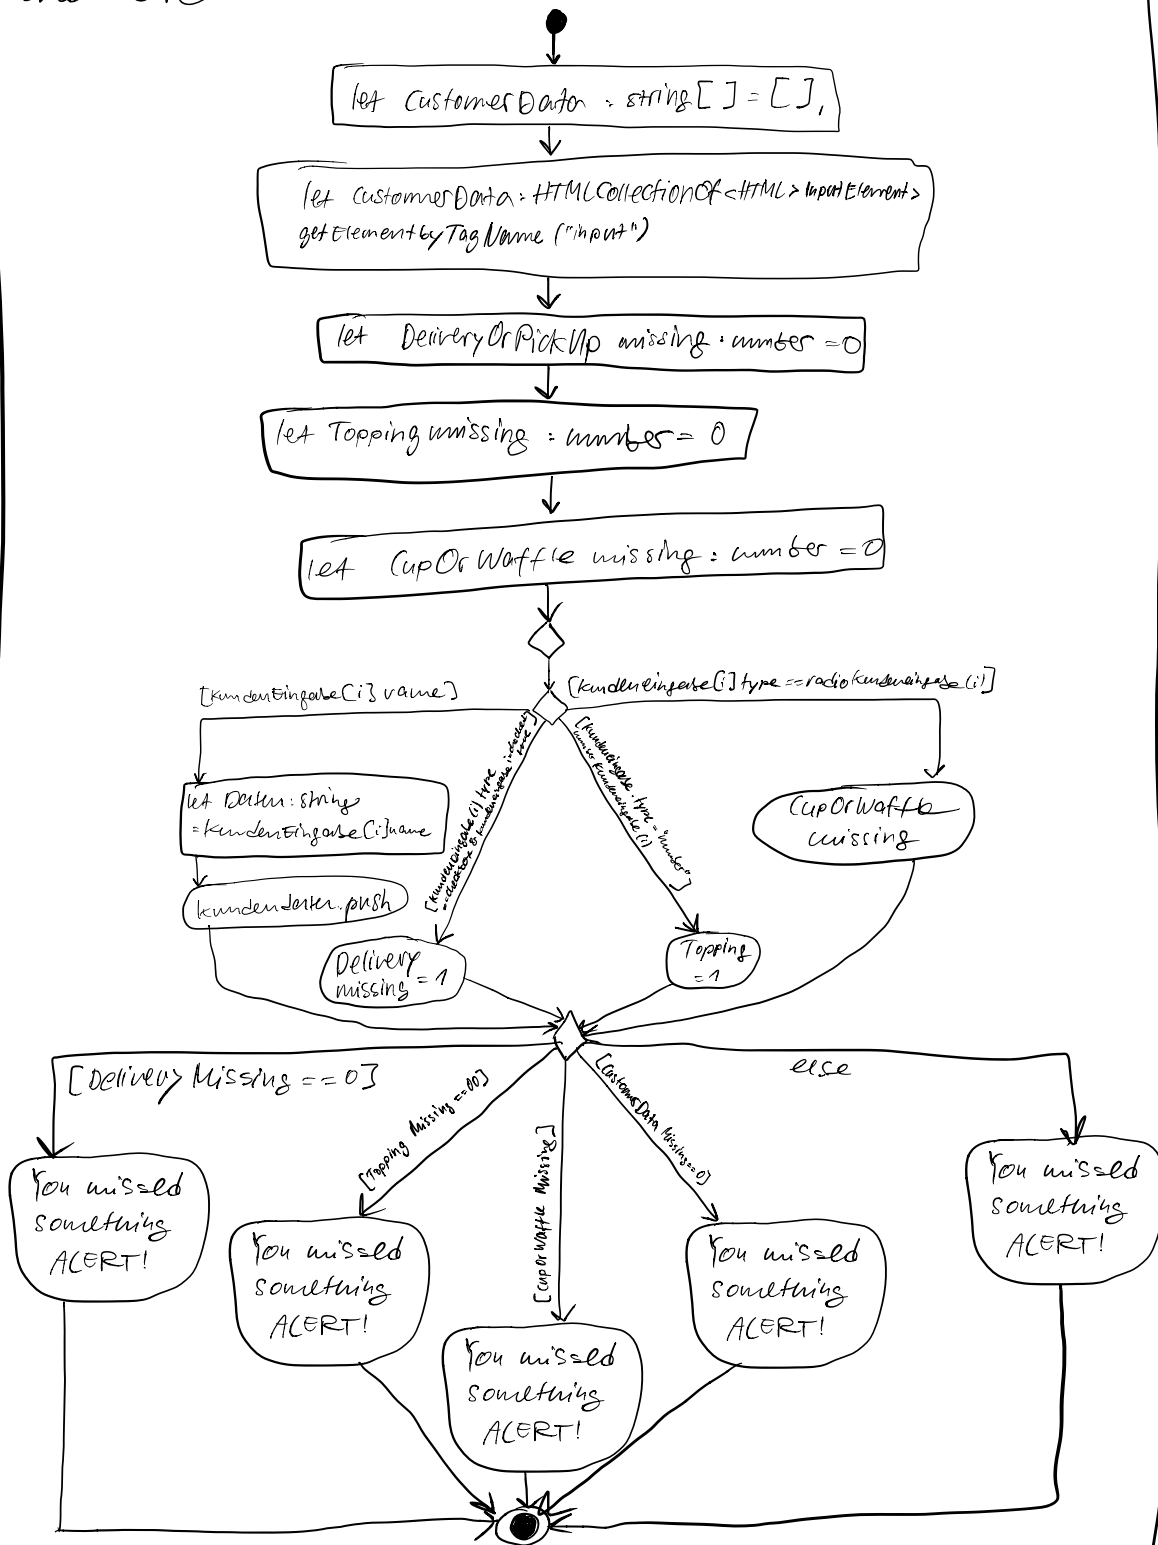 let CustomerData : string [ ] = [ ],
let CustomerData : HTMLCollectionOf <HTML> InputElement>
getElementbyTagName ("input")
let DeliveryOrPickUp missing : number = 0
let Topping missing : number = 0
let CupOrWaffle missing : number = 0
[KundenEingabe[i] name]
[Kundeneingabe[i] type == radio Kundeneingabe(i)]
[KundenEingabe(i) type
== checkbox & Kundeneingabe checked
true
[Kundeneingabe.type = "number"]
Kundeneingabe(i)
let Daten : string
= KundenEingabe[i] name
Kundendaten.push
Delivery
missing = 1
Topping
= 1
CupOrWaffle
missing
[Delivery Missing == 0]
[Topping Missing == 00]
[CupOrWaffle Missing]
[CustomerData Missing == 0]
else
You missed
something
ALERT!
You missed
something
ALERT!
You missed
something
ALERT!
You missed
something
ALERT!
You missed
something
ALERT!